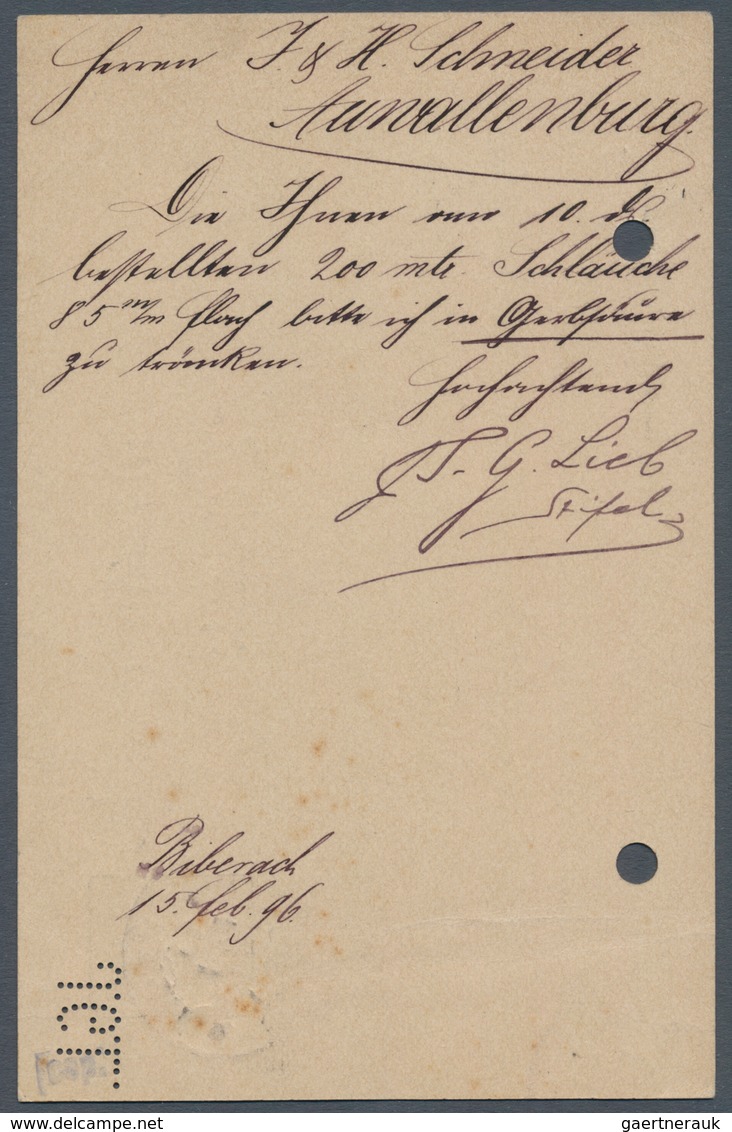 Herren J. & H. Schneider
Aunallenburg.
Die Ihnen am 10. ds.
bestellten 200 mtr. Schläuche
85 m/m flach bitte ich in Gerbsäure
zu tränken.
Hochachtend
J. G. Lieb
Biberach
15. Feb. 96.
delcampe.net
gaertnerauk